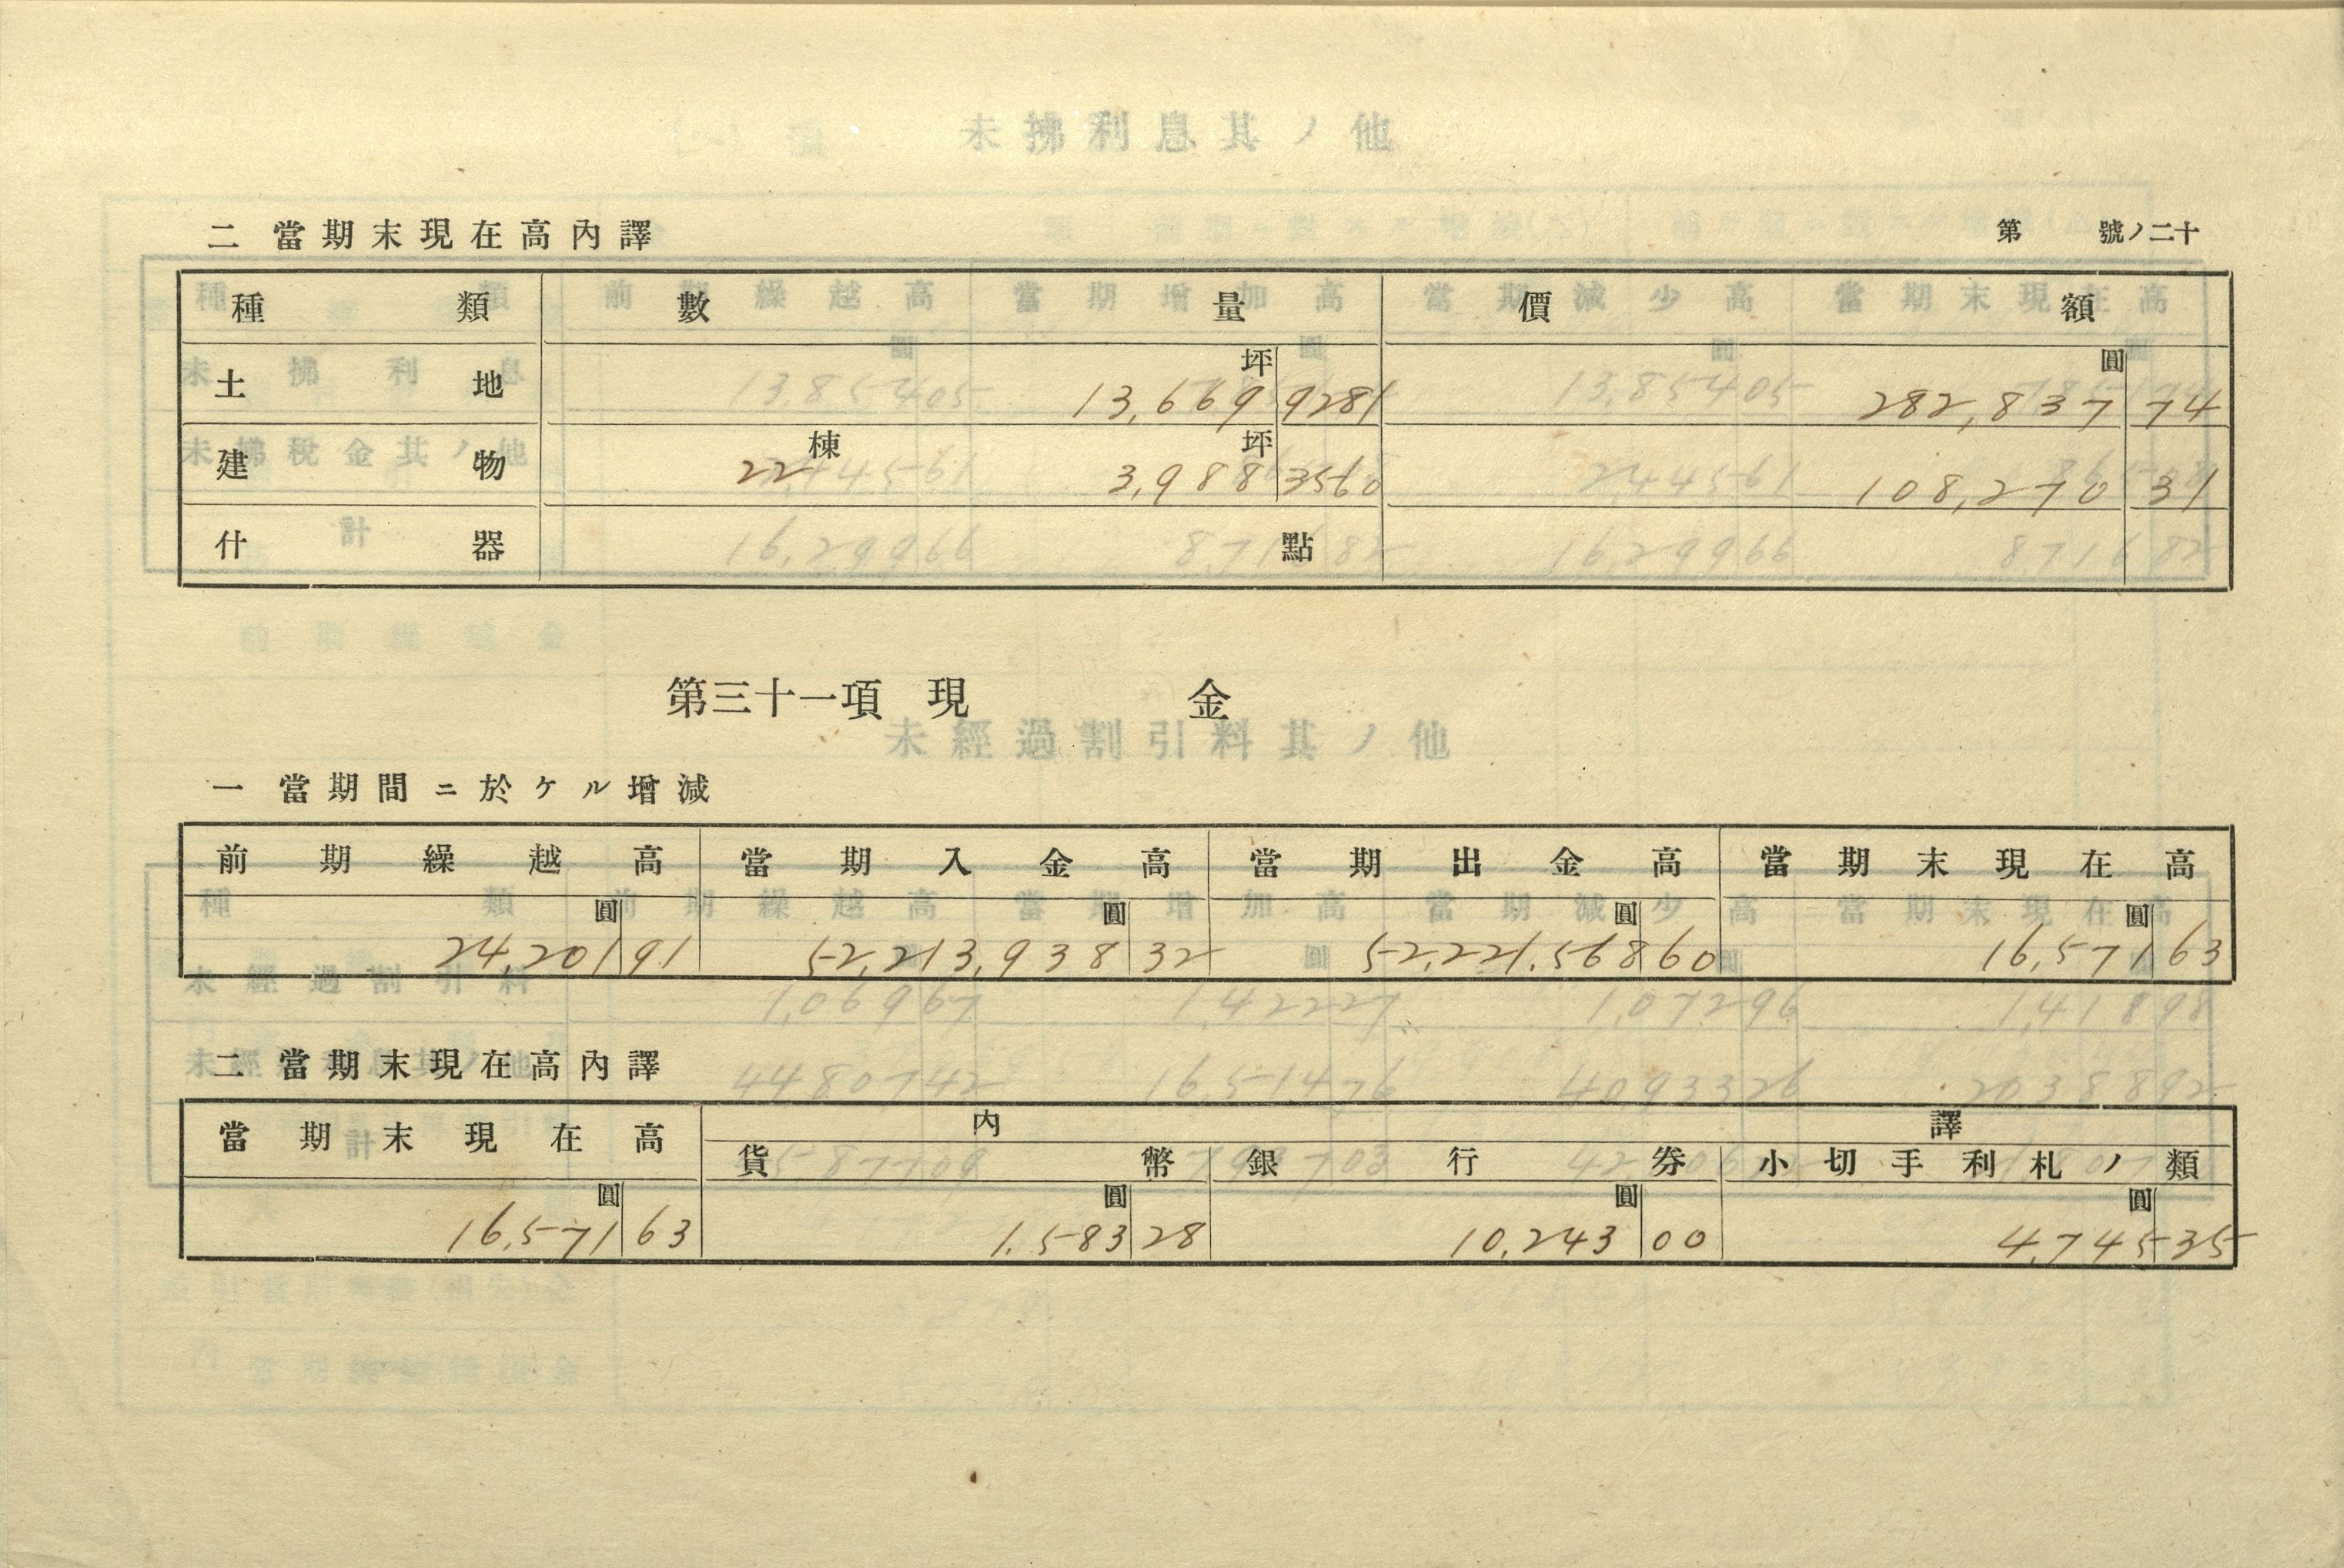 二 當期末現在高內譯 第 號ノ二十
種類 數量 價額
土地 坪 13,669 9281 圓 282,837 74
建物 棟 22 坪 3,988 3560 108,270 31
什器 點
第三十一項 現金
一 當期間ニ於ケル增減
前期繰越高 當期入金高 當期出金高 當期末現在高
圓 24,201 91 圓 52,213,938 32 圓 52,221,568 60 圓 16,571 63
二 當期末現在高內譯
當期末現在高 內譯
貨幣 銀行券 小切手利札ノ類
圓 16,571 63 圓 1,583 28 圓 10,243 00 圓 4,745 35